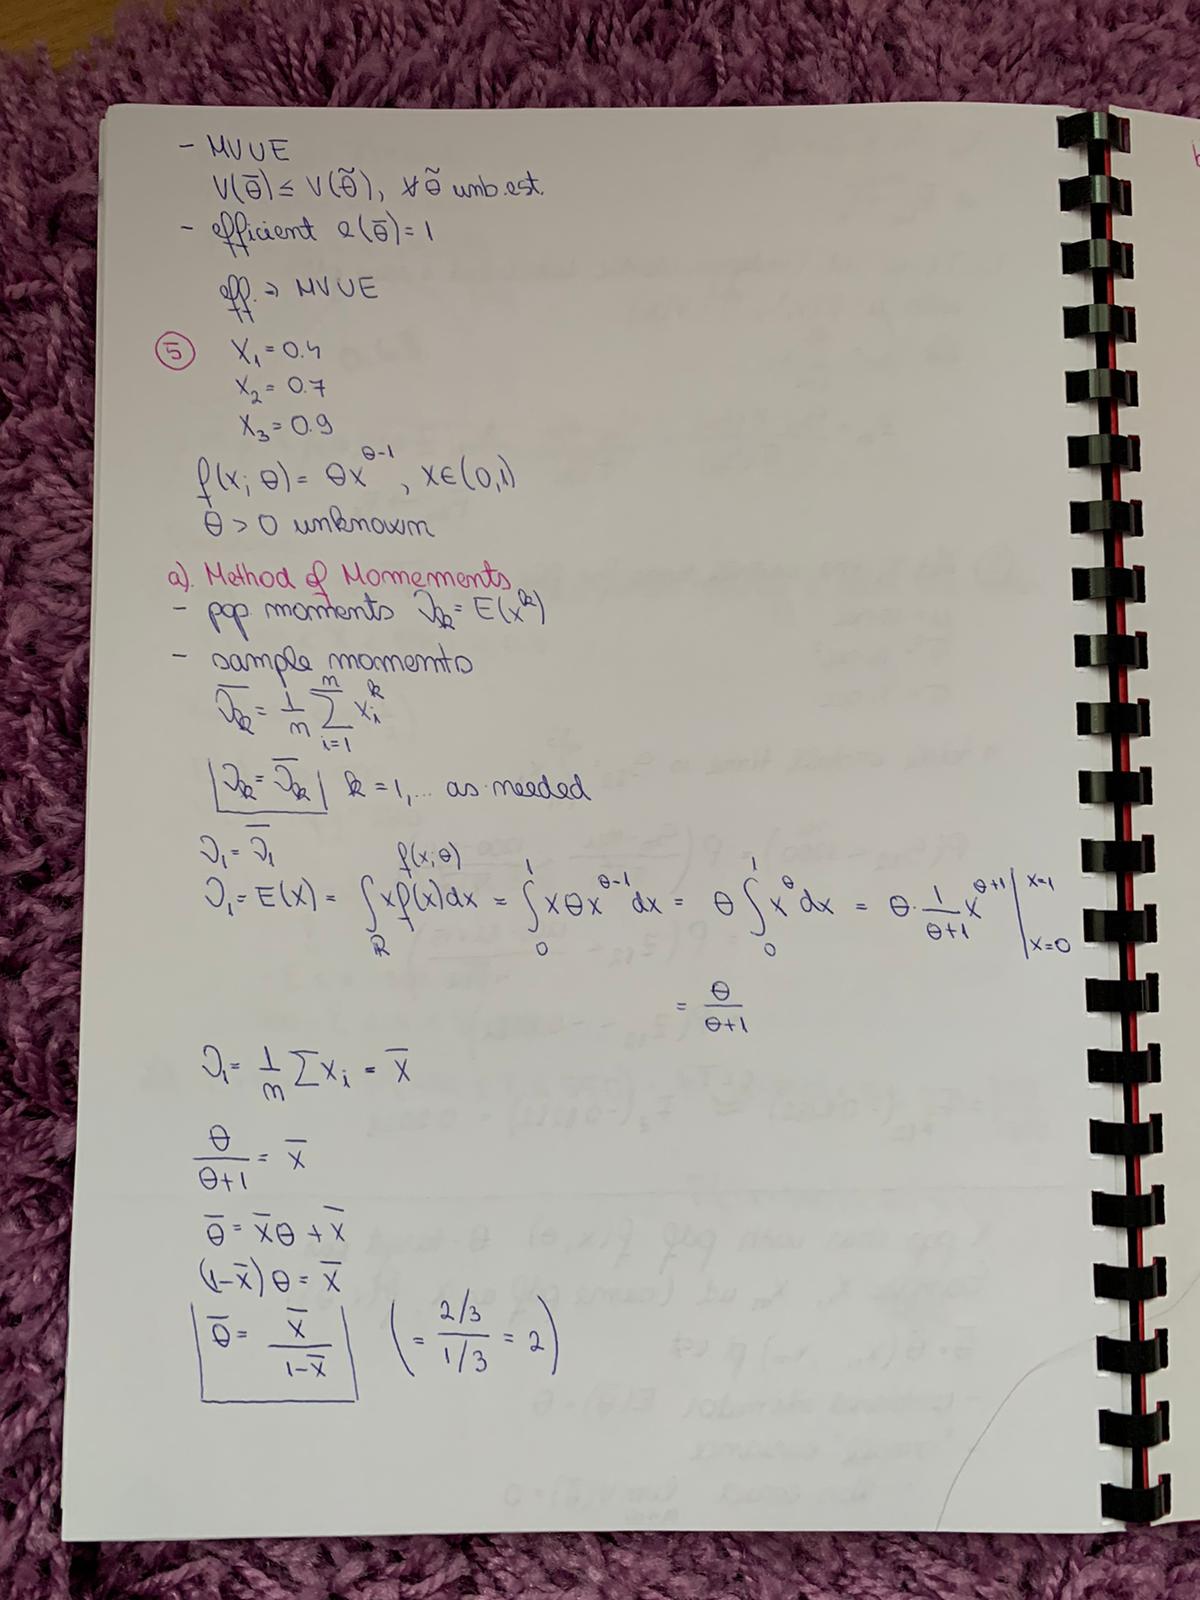 - MVUE
V(θ̄) ≤ V(θ̃), ∀ θ̃ unb.est.
- efficient e(θ̄) = 1
eff. => MVUE
5 X₁ = 0.4
X₂ = 0.7
X₃ = 0.9
f(x; θ) = θx^(θ-1), x∈(0,1)
θ > 0 unknown
a). Method of Momements
- pop moments ν_k = E(x^k)
- sample moments
ν̄_k = 1/n Σ_{i=1}^{n} x_i^k
ν_k = ν̄_k k = 1,... as needed
ν₁ = ν̄₁
f(x; θ)
ν₁ = E(x) = ∫_ℝ x f(x) dx = ∫_0^1 x θ x^(θ-1) dx = θ ∫_0^1 x^θ dx = θ · 1/(θ+1) x^(θ+1) |_{x=0}^{x=1}
= θ/(θ+1)
ν₁ = 1/n Σ x_i = x̄
θ/(θ+1) = x̄
θ̄ = x̄θ + x̄
(1-x̄) θ = x̄
θ̄ = x̄/(1-x̄) ( = (2/3)/(1/3) = 2 )